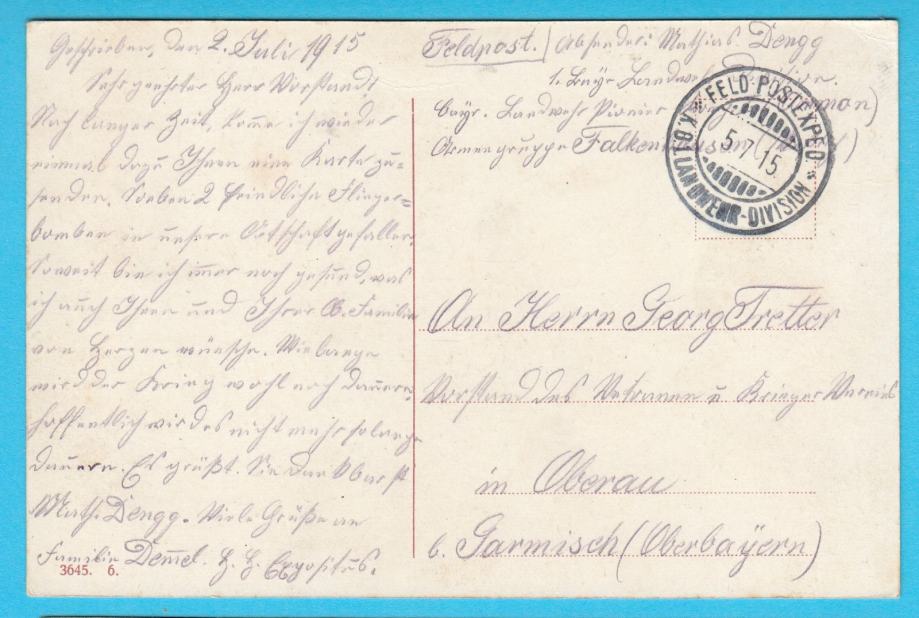 Geschrieben, den 2. Juli 1915
Sehr geehrter Herr Vorstand!
Nach langer Zeit, komme ich wieder
einmal dazu Ihnen eine Karte zu=
senden. Soeben 2 friedliche Flieger=
bomben in unsere Ortschaft gefallen.
Soweit bin ich immer noch gesund, was
ich auch Ihnen und Ihrer Familie
von Herzen wünsche. Wie lange
wird der Krieg wohl noch dauern,
hoffentlich wird es nicht mehr so lange
dauern. Es grüßt Sie dankbarst
Math. Dengg. Viele Grüße an
Familie Demmel. H. H. Expositus.
3645. 6.
Feldpost. / Absender: Mathias Dengg
1. Bayr. Landwehr Division.
bayr. Landwehr Pionier
Armeegruppe Falkenhausen
K.B. FELD-POSTEXPED.
5.7.15.
LANDWEHR-DIVISION
An Herrn Georg Tretter
Vorstand des Vetranen u Krieger Vereins
in Oberau
b. Garmisch (Oberbayern)